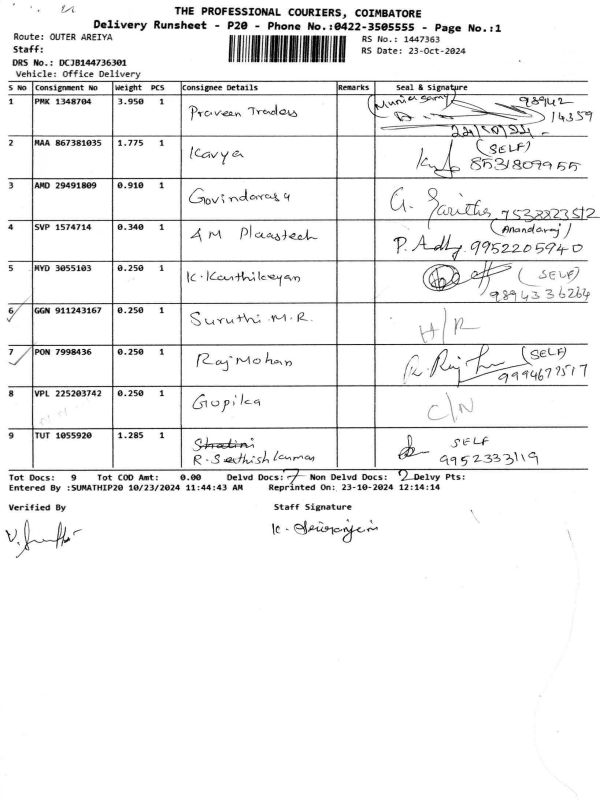 THE PROFESSIONAL COURIERS, COIMBATORE
Delivery Runsheet - P20 - Phone No.:0422-3505555 - Page No.:1
Route: OUTER AREIYA RS No.: 1447363
Staff: RS Date: 23-Oct-2024
DRS No.: DCJB144736301
Vehicle: Office Delivery
S No Consignment No Weight PCS Consignee Details Remarks Seal & Signature
1 PMK 1348704 3.950 1 Praveen Traders 98942 14359
2 MAA 867381035 1.775 1 Kavya (SELF) 8531809955
3 AMD 29491809 0.910 1 G. 7538823512
4 SVP 1574714 0.340 1 AM Plaastech (Anandaraj) P. 9952205940
5 MYD 3055103 0.250 1 K. Karthikeyan (SELF) 9894336264
6 GGN 911243167 0.250 1 Suruthi. M. R. H/R
7 PON 7998436 0.250 1 Raj Mohan (SELF) 9994677517
8 VPL 225203742 0.250 1 Gopika C/N
9 TUT 1055920 1.285 1 R. Seethish kumar SELF 9952333119
Tot Docs: 9 Tot COD Amt: 0.00 Delvd Docs: 7 Non Delvd Docs: 2 Delvy Pts:
Entered By :SUMATHIP20 10/23/2024 11:44:43 AM Reprinted On: 23-10-2024 12:14:14
Verified By Staff Signature